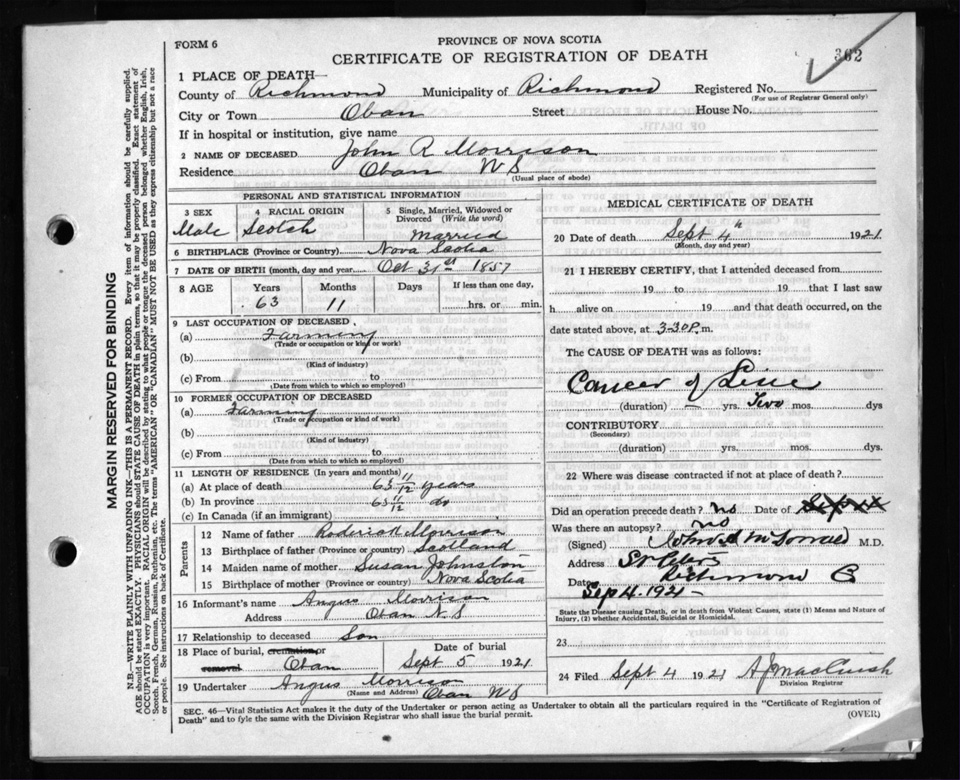 FORM 6
PROVINCE OF NOVA SCOTIA
CERTIFICATE OF REGISTRATION OF DEATH
362
1 PLACE OF DEATH—
County of Richmond Municipality of Richmond Registered No.
(For use of Registrar General only)
City or Town Oban Street House No.
If in hospital or institution, give name
2 NAME OF DECEASED John R Morrison
Residence Oban N S
(Usual place of abode)
PERSONAL AND STATISTICAL INFORMATION
3 SEX
Male
4 RACIAL ORIGIN
Scotch
5 Single, Married, Widowed or Divorced (Write the word)
Married
6 BIRTHPLACE (Province or Country) Nova Scotia
7 DATE OF BIRTH (month, day and year) Oct 31st 1857
8 AGE Years Months Days If less than one day,
63 11 hrs. or min.
9 LAST OCCUPATION OF DECEASED
(a) Farming
(Trade or occupation or kind or work)
(b)
(Kind of industry)
(c) From to
(Date from which to which so employed)
10 FORMER OCCUPATION OF DECEASED
(a) Farming
(Trade or occupation or kind of work)
(b)
(Kind of industry)
(c) From to
(Date from which to which so employed)
11 LENGTH OF RESIDENCE (In years and months)
(a) At place of death 63 11/12 years
(b) In province 63 11/12 do
(c) In Canada (if an immigrant)
Parents
12 Name of father Roderick Morrison
13 Birthplace of father (Province or country) Scotland
14 Maiden name of mother Susan Johnston
15 Birthplace of mother (Province or Country) Nova Scotia
16 Informant's name Angus Morrison
Address Oban N.S
17 Relationship to deceased Son
18 Place of burial, cremation or removal Date of burial
Oban Sept 5 1921
19 Undertaker Angus Morrison
(Name and Address) Oban N S
MEDICAL CERTIFICATE OF DEATH
20 Date of death Sept 4th 1921
(Month, day and year)
21 I HEREBY CERTIFY, that I attended deceased from
19 to 19 that I last saw
h alive on 19 and that death occurred, on the
date stated above, at 3-30 P. m.
The CAUSE OF DEATH was as follows:
Cancer of
(duration) — yrs. Two mos. dys
CONTRIBUTORY
(Secondary)
(duration) yrs. mos. dys.
22 Where was disease contracted if not at place of death?
Did an operation precede death? no Date of
Was there an autopsy? no
(Signed) John A M.D.
Address St Peters
Richmond
Date Sep 4. 1921-
State the Disease causing Death, or in death from Violent Causes, state (1) Means and Nature of
Injury, (2) whether Accidental, Suicidal or Homicidal.
23
24 Filed Sept 4 1921
Division Registrar
SEC. 46—Vital Statistics Act makes it duty of the Undertaker or person acting as Undertaker to obtain all the particulars required in the "Certificate of Registration of
Death" and to fyle the same with the Division Registrar who shall issue the burial permit. (OVER)
MARGIN RESERVED FOR BINDING
N.B.—WRITE PLAINLY WITH UNFADING INK—THIS IS A PERMANENT RECORD. Every item of information should be carefully supplied.
AGE should be stated EXACTLY. PHYSICIANS should STATE CAUSE OF DEATH in plain terms, so that it may be properly classified. Exact statement of
OCCUPATION is very important. RACIAL ORIGIN will be described by stating to what people or tongue the deceased person belonged whether English, Irish,
Scotch, French, German, Russian, Ruthenian, etc. The terms "AMERICAN" OR "CANADIAN" MUST NOT BE USED as they express citizenship but not a race
or people. See instructions on back of Certificate.